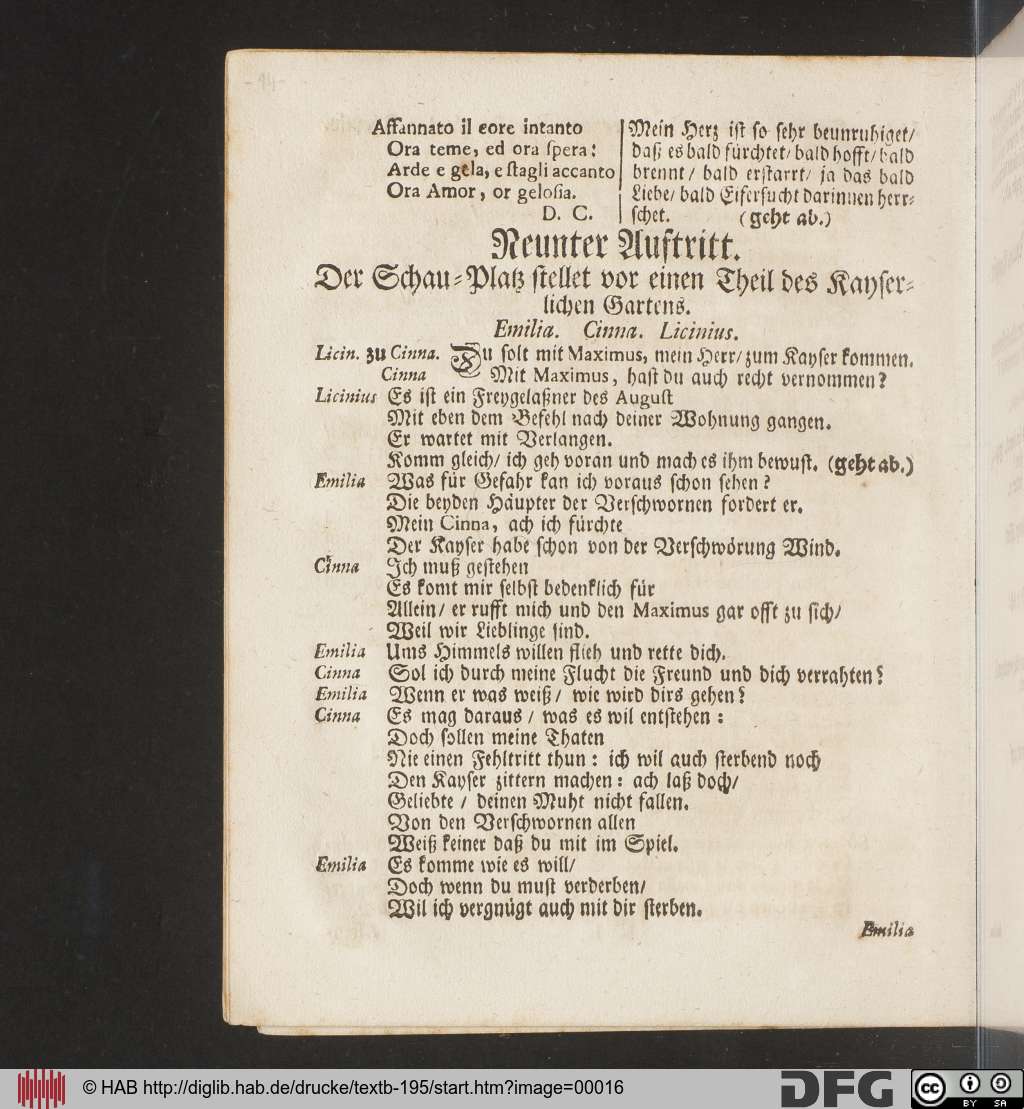 -14-
Affannato il core intanto
Ora teme, ed ora spera:
Arde e gela, e stagli accanto
Ora Amor, or gelosia.
D. C.
Mein Herz ist so sehr beunruhiget/
daß es bald fürchtet/ bald hofft/ bald
brennt/ bald erstarrt/ ja das bald
Liebe/ bald Eifersucht darinnen herr-
schet. (geht ab.)
Neunter Auftritt.
Der Schau-Platz stellet vor einen Theil des Kayser-
lichen Gartens.
Emilia. Cinna. Licinius.
Licin. zu Cinna. Du solt mit Maximus, mein Herr/ zum Kayser kommen.
Cinna Mit Maximus, hast du auch recht vernommen?
Licinius Es ist ein Freygelaßner des August
Mit eben dem Befehl nach deiner Wohnung gangen.
Er wartet mit Verlangen.
Komm gleich/ ich geh voran und mach es ihm bewust. (geht ab.)
Emilia Was für Gefahr kan ich voraus schon sehen?
Die beyden Häupter der Verschwornen fordert er.
Mein Cinna, ach ich fürchte
Der Kayser habe schon von der Verschwörung Wind.
Cinna Ich muß gestehen
Es komt mir selbst bedenklich für
Allein/ er rufft mich und den Maximus gar offt zu sich/
Weil wir Lieblinge sind.
Emilia Ums Himmels willen flieh und rette dich.
Cinna Sol ich durch meine Flucht die Freund und dich verrahten?
Emilia Wenn er was weiß/ wie wird dirs gehen?
Cinna Es mag daraus/ was es wil entstehen:
Doch sollen meine Thaten
Nie einen Fehltritt thun: ich wil auch sterbend noch
Den Kayser zittern machen: ach laß doch/
Geliebte/ deinen Muht nicht fallen.
Von den Verschwornen allen
Weiß keiner daß du mit im Spiel.
Emilia Es komme wie es will/
Doch wenn du must verderben/
Wil ich vergnügt auch mit dir sterben.
Emilia
© HAB http://diglib.hab.de/drucke/textb-195/start.htm?image=00016
DFG
cc BY SA